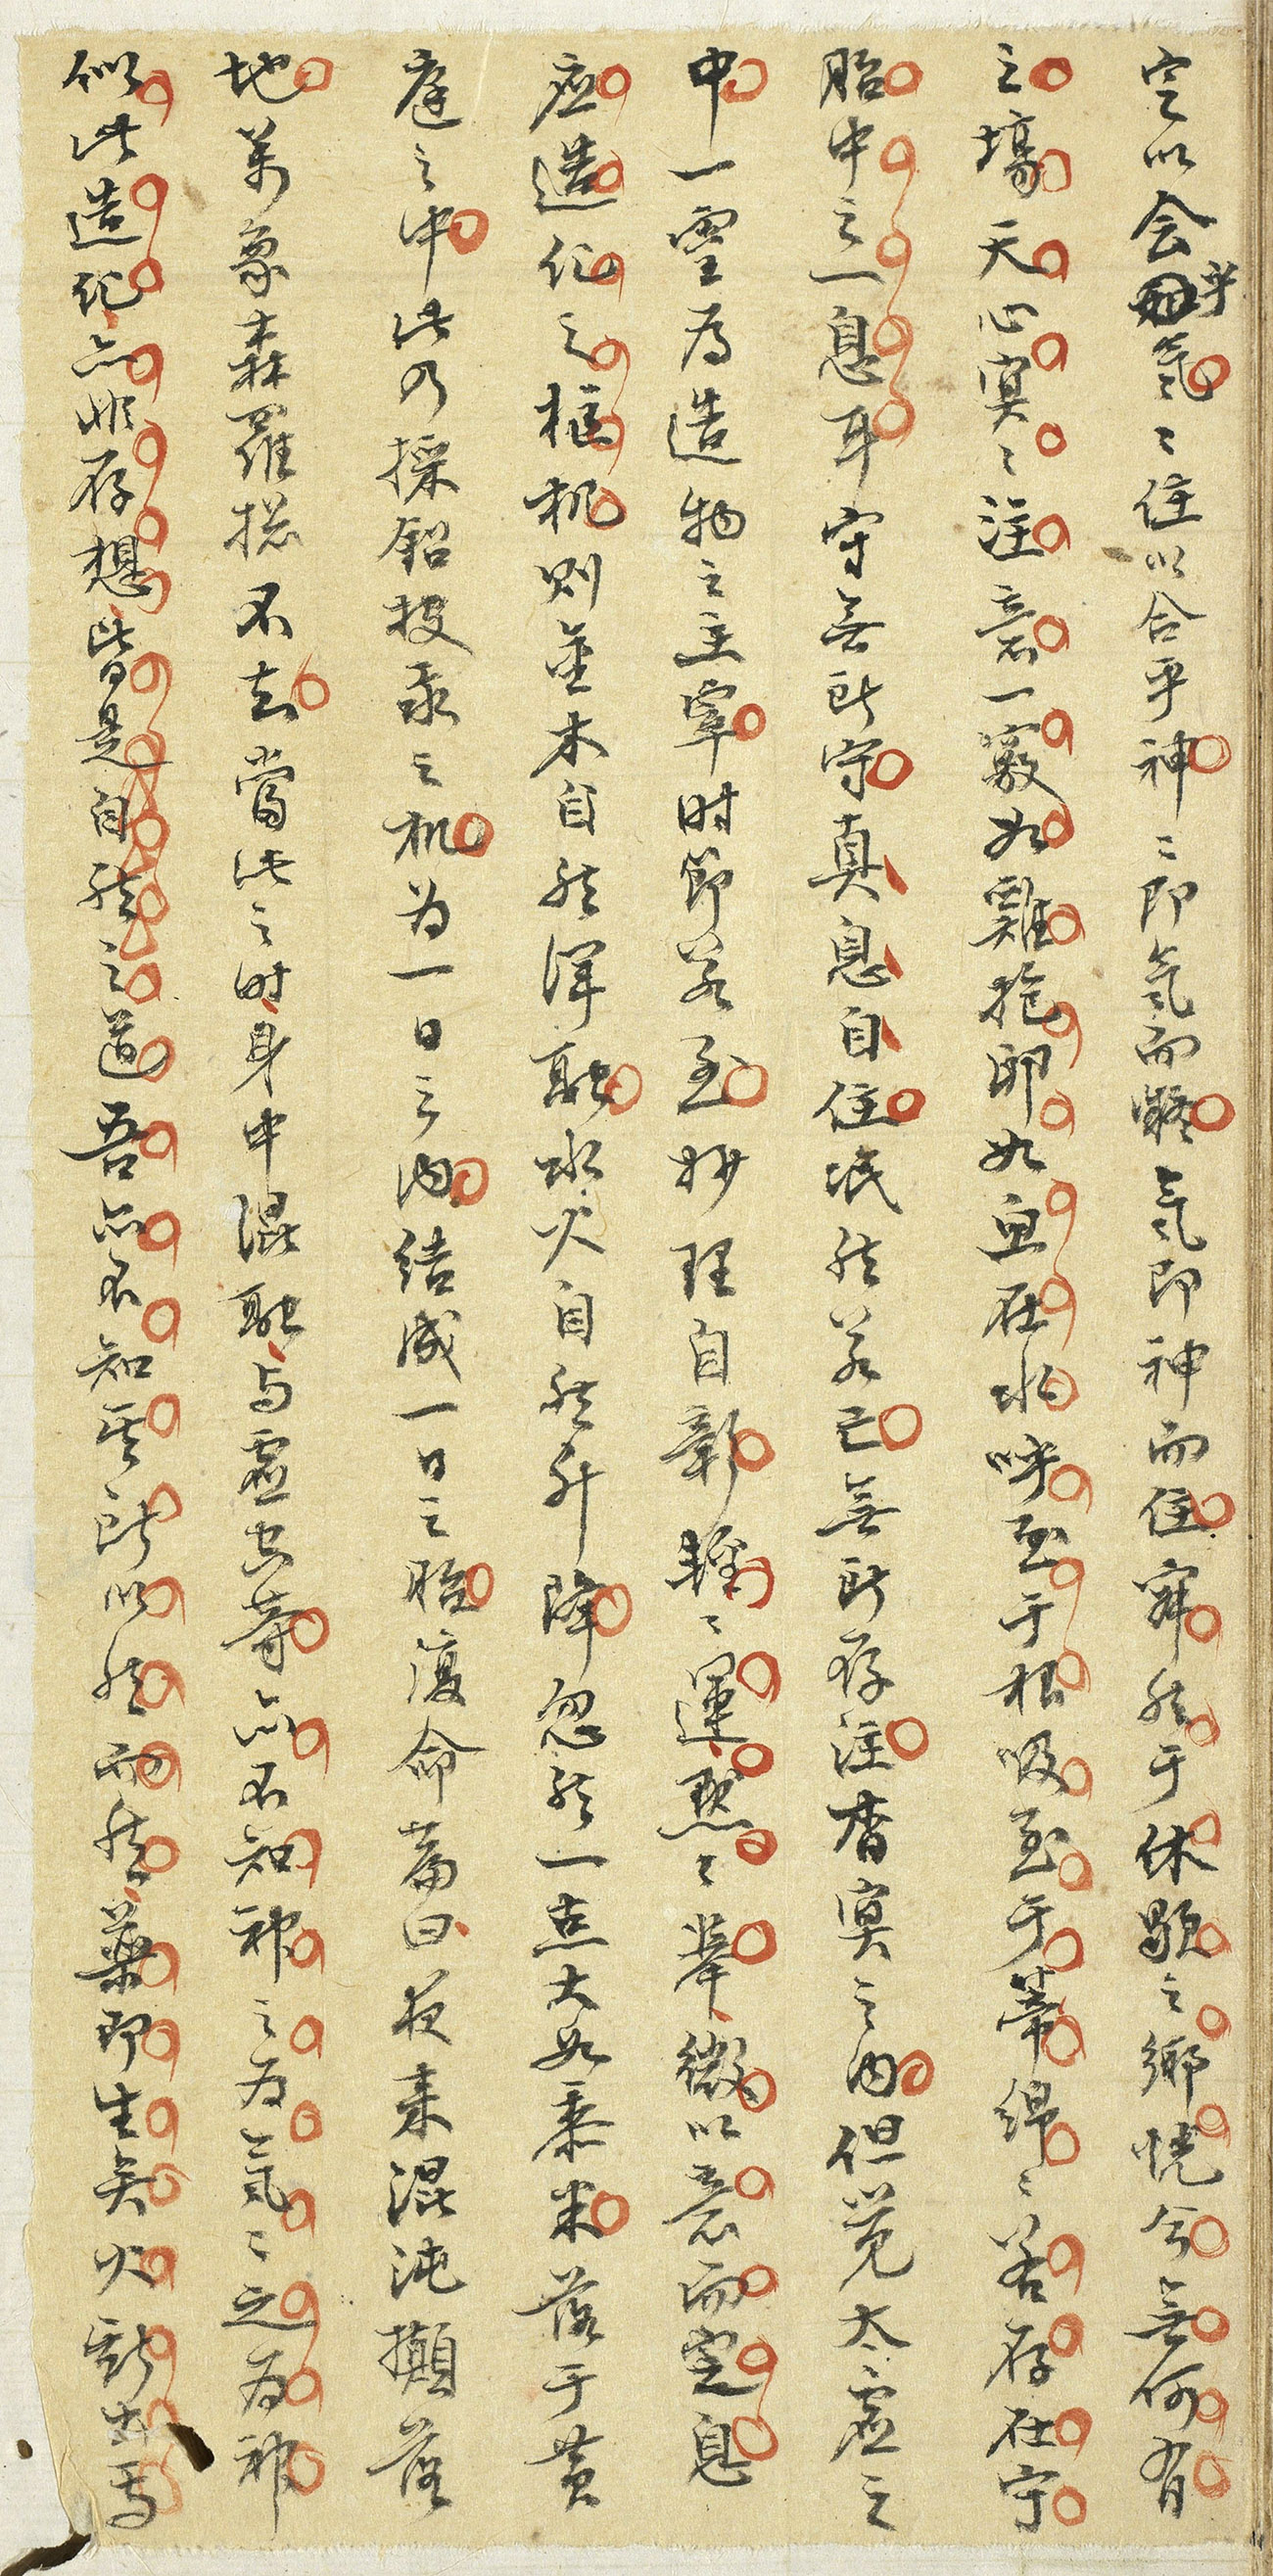 定以会乎氣〻住以合乎神〻即氣而凝氣即神而住寂然于休歇之鄉恍兮無何有
之塲天心冥〻注意一竅如雞抱卵如魚在水呼至于根吸至于蒂綿〻若存在守
胎中之一息耳守無所守真息自住泯然若亡無所存注杳冥之内但覚太虛之
中一霊為造物之主宰时節若至抄理自彰輕〻運默〻舉微以意而定息
應造化之樞机则金木自然渾融水火自然升降忽然一点大如黍米落于黄
庭之中此乃採鉛投汞之机为一日之内結成一日之胎復命篇曰夜来混沌攧落
地萬象森羅捴不去當此之时身中混融与虛空等亦不知神之为氣〻之为神
似此造化亦非存想皆是自然之道吾亦不知其所以然而然藥即生矣火斯出焉